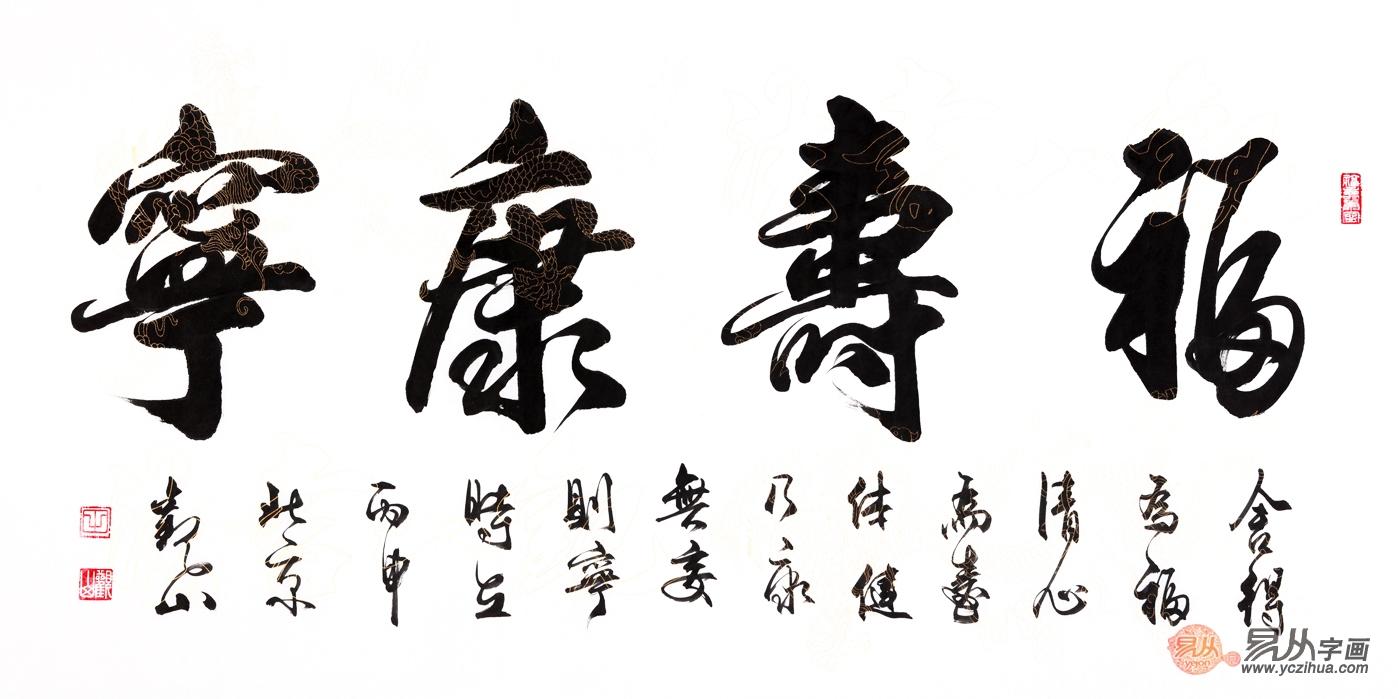 福壽康寧
舍得
為福
清心
為壽
体健
乃康
無妄
則寧
時在
丙申
北京
觀山
易从字画
www.yczihua.com